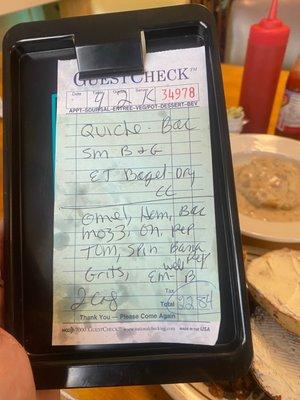 GUESTCHECK™
Date
34978
APPT-SOUP/SAL-ENTREE-VEG/POT-DESSERT-BEV
Quiche - Bac
Sm B & G
ET Bagel Dry
CC
Omel, Ham, Bac
mozz, On, Pep
Tom, Spin
Grits, Em B
2 Cof
Tax
Total 22.84
Thank You — Please Come Again
www.nationalchecking.com MADE IN USA